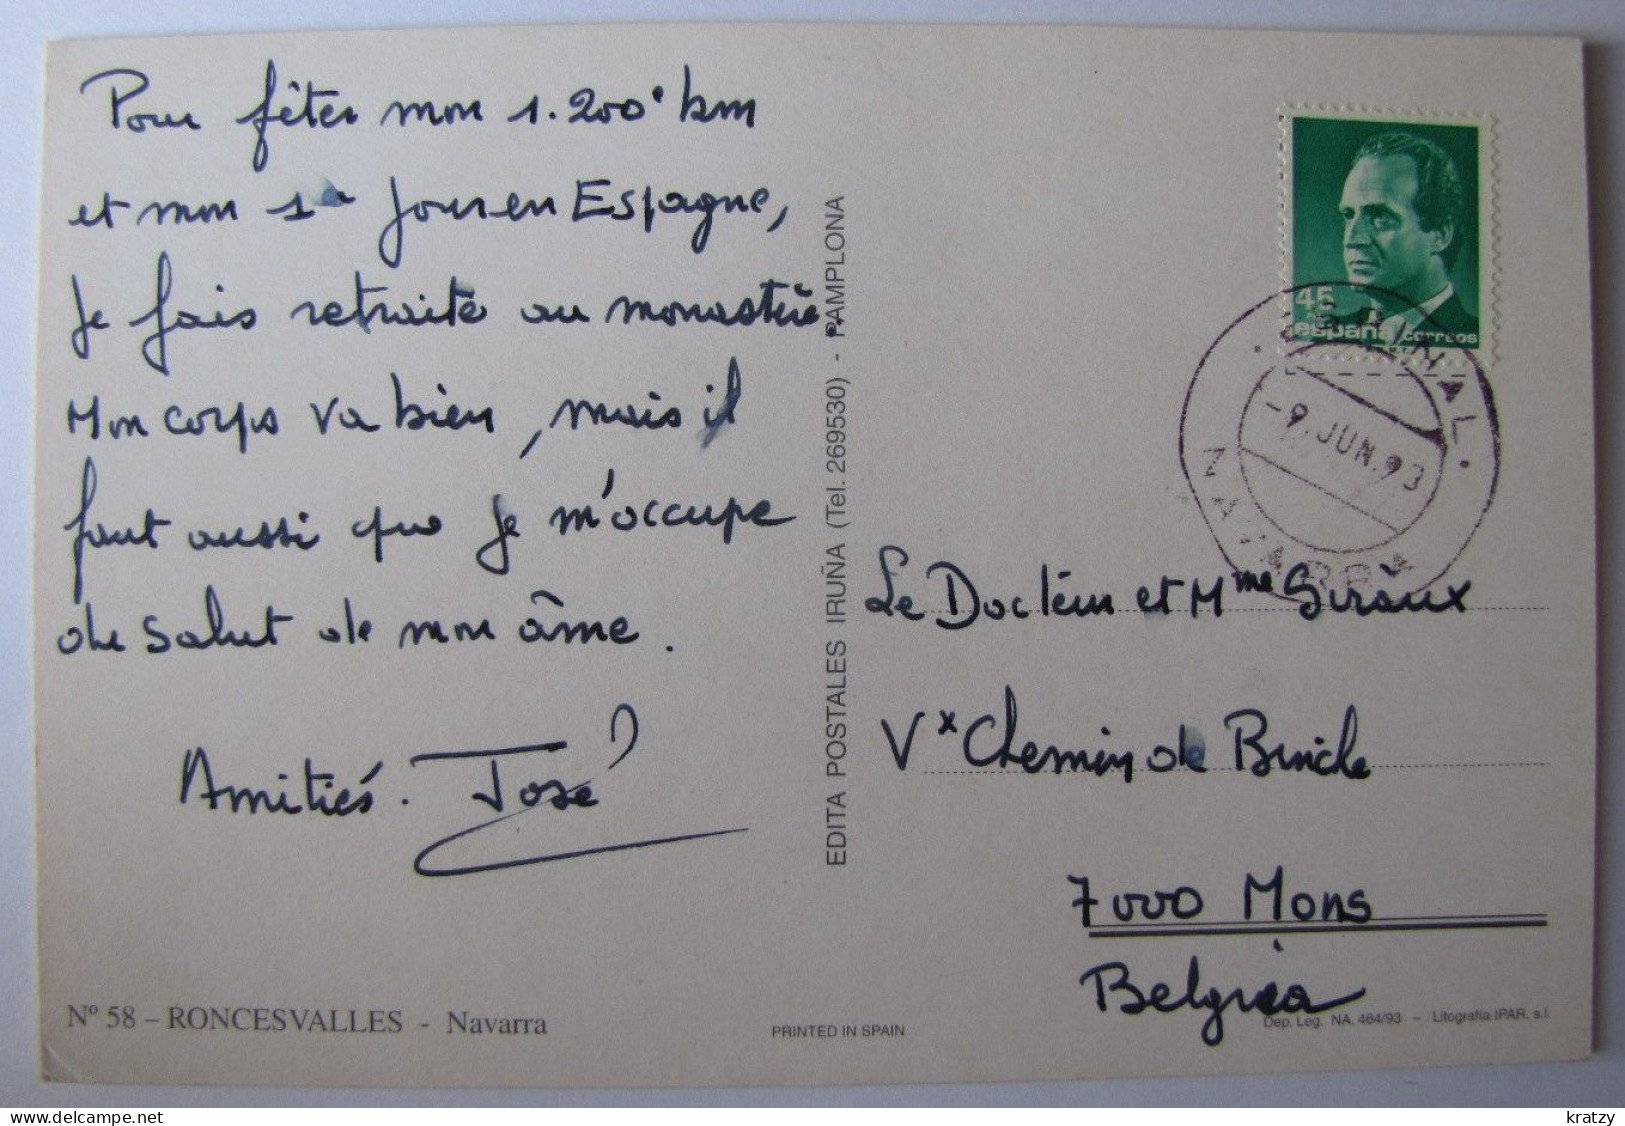 Pour fêter mon 1.200e km
et mon 1er jour en Espagne,
je fais retraite au monastère.
Mon corps va bien, mais il
faut aussi que je m'occupe
de salut de mon âme.
Amitiés. José
Nº 58 – RONCESVALLES - Navarra
EDITA POSTALES IRUÑA (Tel. 269530) - PAMPLONA
PRINTED IN SPAIN
45
españa correos
ESPINAL
-9.JUN.93
NAVARRA
Le Docteur et Mme Siraux
Vx Chemin de Binche
7000 Mons
Belgica
Dep. Leg. NA. 464/93 – Litografia IPAR, s.l.
delcampe.net
kratzy